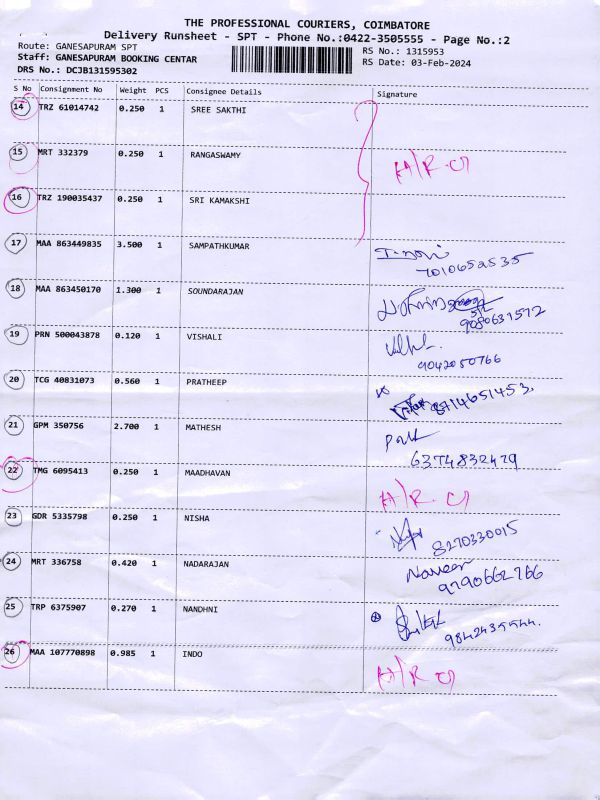 THE PROFESSIONAL COURIERS, COIMBATORE
Delivery Runsheet - SPT - Phone No.:0422-3505555 - Page No.:2
Route: GANESAPURAM SPT
RS No.: 1315953
Staff: GANESAPURAM BOOKING CENTAR
RS Date: 03-Feb-2024
DRS No.: DCJB131595302
S No Consignment No Weight PCS Consignee Details Signature
14 TRZ 61014742 0.250 1 SREE SAKTHI
15 MRT 332379 0.250 1 RANGASWAMY
16 TRZ 190035437 0.250 1 SRI KAMAKSHI
17 MAA 863449835 3.500 1 SAMPATHKUMAR
7010652535
18 MAA 863450170 1.300 1 SOUNDARAJAN
9080631572
19 PRN 500043878 0.120 1 VISHALI
9042050766
20 TCG 40831073 0.560 1 PRATHEEP
8714651453.
21 GPM 350756 2.700 1 MATHESH
6374832479
22 TMG 6095413 0.250 1 MAADHAVAN
23 GDR 5335798 0.250 1 NISHA
8270330015
24 MRT 336758 0.420 1 NADARAJAN
Naveen
9790662766
25 TRP 6375907 0.270 1 NANDHNI
9842435544.
26 MAA 107770898 0.985 1 INDO